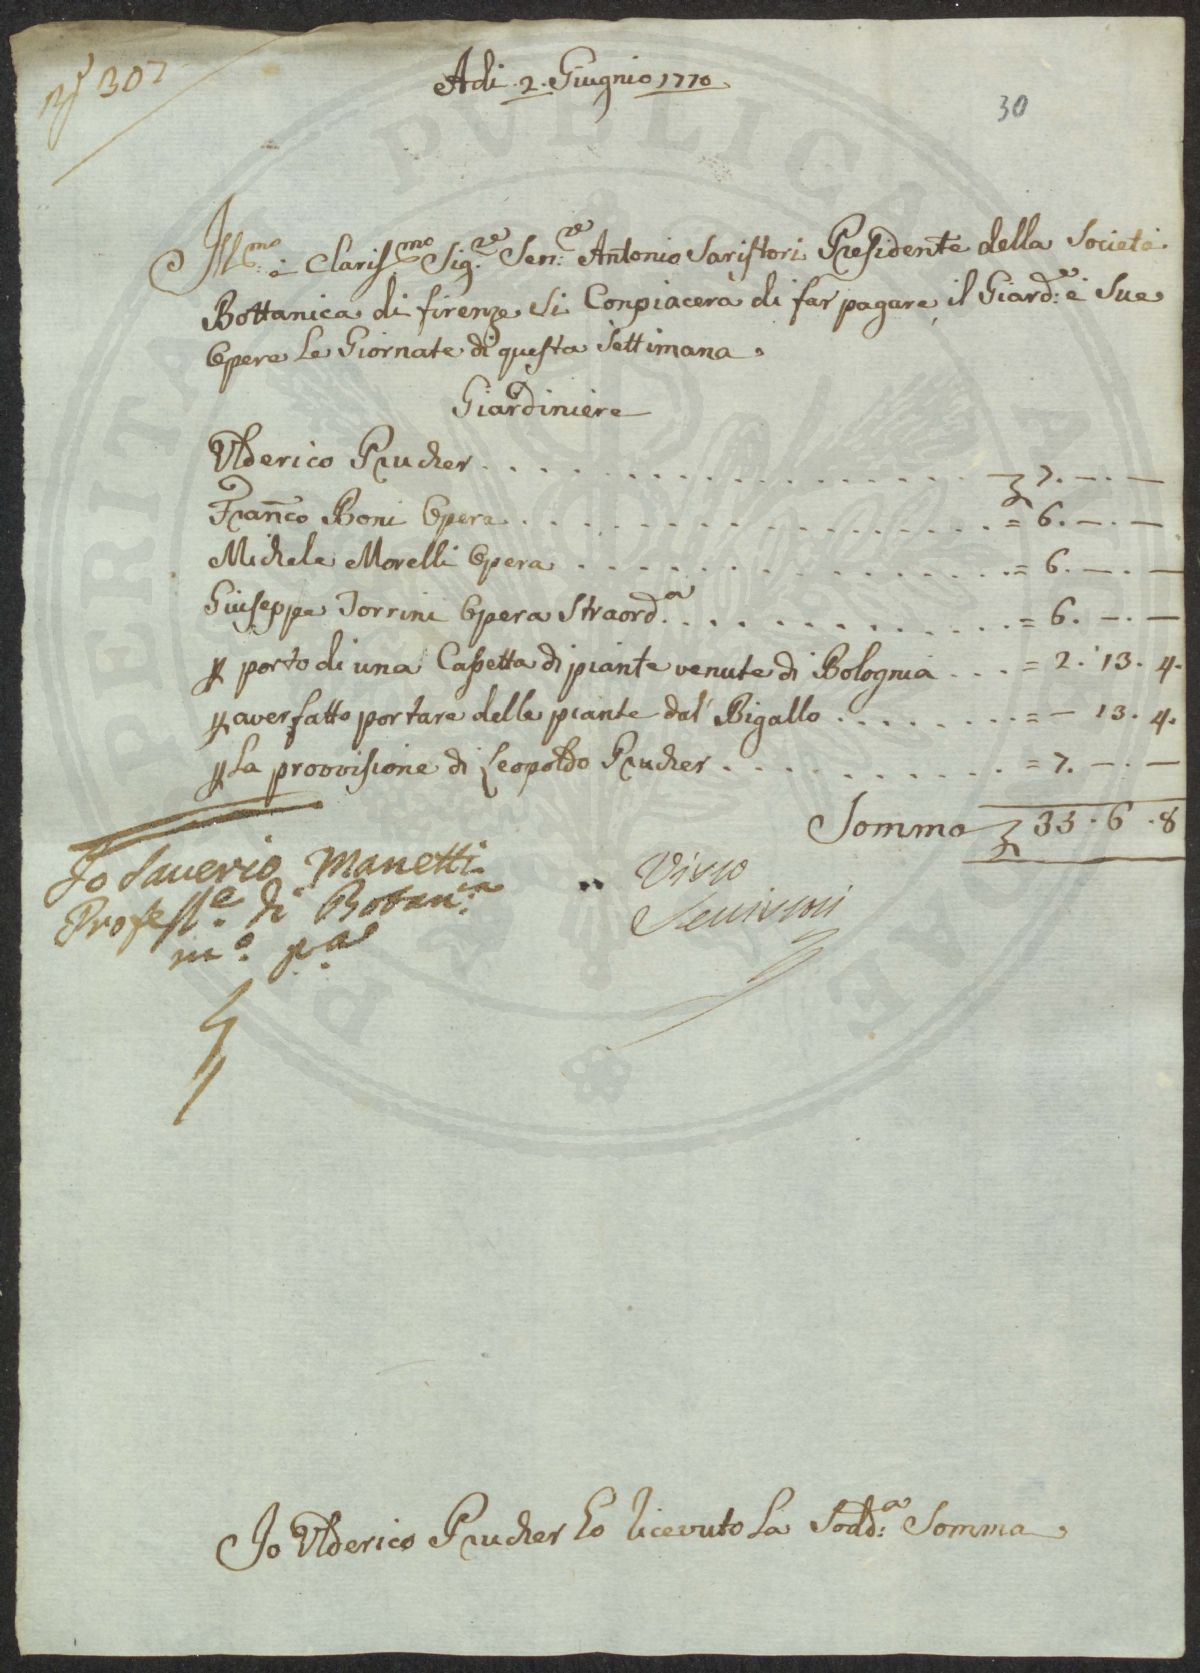 307
Adi 2. Giugnio 1770
30
Ill.mo è Clariss.mo Sig.re Sen.re Antonio Saristori Presidente della Società
Bottanica di firenze Si Conpiacerà di far pagare il Giard.e è Sue
Opere Le Giornate di questa Settimana.
Giardiniere
Ulderico Prucher . . . . 7. — . —
Fran.co Boni Opera . . . . = 6. — . —
Michele Morelli Opera . . . . = 6. — . —
Giuseppe Torrini Opera Straord.a . . . . = 6. — . —
p porto di una Cassetta di piante venute di Bolognia . . . = 2. 13. 4.
p aver fatto portare delle piante dal' Bigallo . . . . = — 13. 4.
p La provvisione di Leopoldo Prucher . . . . = 7. — . —
Somma 35. 6. 8
Io Saverio Manetti
Profess.e di Botan.ca
m.o p.a
Visto
Io Ulderico Prucher ho Ricevuto La Sodd.a Somma
PERITAN PVBLICAE